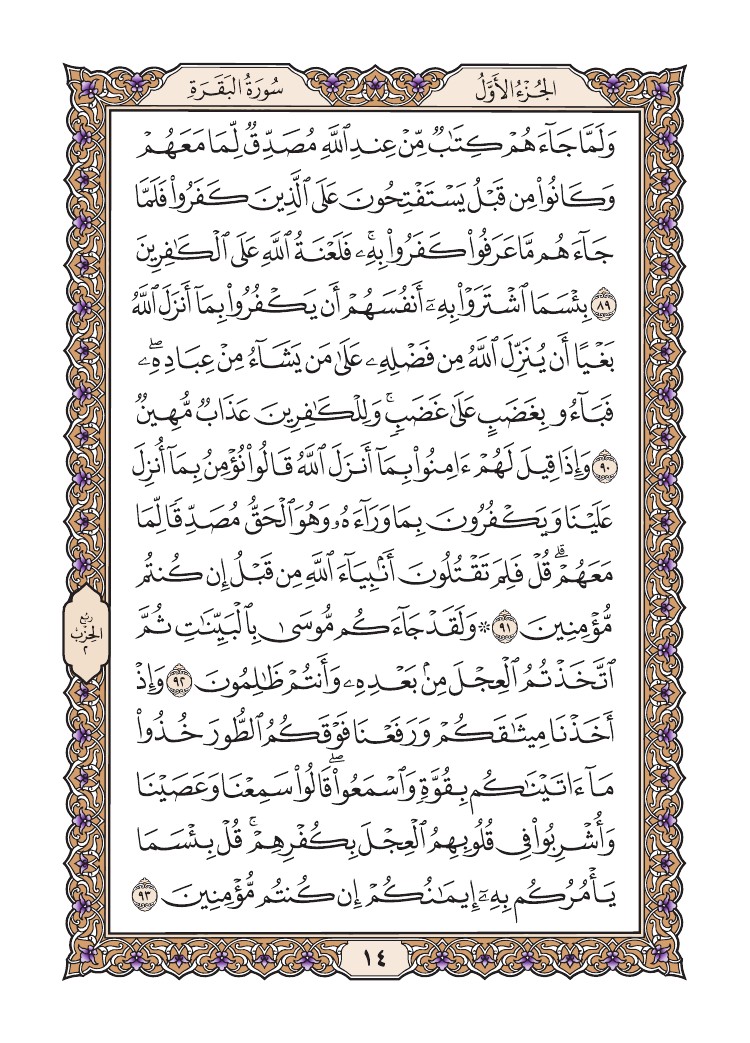 الجُزْءُ الأَوَّلُ
سُورَةُ البَقَرَةِ
وَلَمَّا جَآءَهُمْ كِتَٰبٌ مِّنْ عِندِ ٱللَّهِ مُصَدِّقٌ لِّمَا مَعَهُمْ
وَكَانُوا۟ مِن قَبْلُ يَسْتَفْتِحُونَ عَلَى ٱلَّذِينَ كَفَرُوا۟ فَلَمَّا
جَآءَهُم مَّا عَرَفُوا۟ كَفَرُوا۟ بِهِۦ ۚ فَلَعْنَةُ ٱللَّهِ عَلَى ٱلْكَٰفِرِينَ
٨٩ بِئْسَمَا ٱشْتَرَوْا۟ بِهِۦٓ أَنفُسَهُمْ أَن يَكْفُرُوا۟ بِمَآ أَنزَلَ ٱللَّهُ
بَغْيًا أَن يُنَزِّلَ ٱللَّهُ مِن فَضْلِهِۦ عَلَىٰ مَن يَشَآءُ مِنْ عِبَادِهِۦ ۖ
فَبَآءُو بِغَضَبٍ عَلَىٰ غَضَبٍ ۚ وَلِلْكَٰفِرِينَ عَذَابٌ مُّهِينٌ
٩٠ وَإِذَا قِيلَ لَهُمْ ءَامِنُوا۟ بِمَآ أَنزَلَ ٱللَّهُ قَالُوا۟ نُؤْمِنُ بِمَآ أُنزِلَ
عَلَيْنَا وَيَكْفُرُونَ بِمَا وَرَآءَهُۥ وَهُوَ ٱلْحَقُّ مُصَدِّقًا لِّمَا
مَعَهُمْ ۗ قُلْ فَلِمَ تَقْتُلُونَ أَنۢبِيَآءَ ٱللَّهِ مِن قَبْلُ إِن كُنتُم
مُّؤْمِنِينَ ٩١ ۞ وَلَقَدْ جَآءَكُم مُّوسَىٰ بِٱلْبَيِّنَٰتِ ثُمَّ
ٱتَّخَذْتُمُ ٱلْعِجْلَ مِنۢ بَعْدِهِۦ وَأَنتُمْ ظَٰلِمُونَ ٩٢ وَإِذْ
أَخَذْنَا مِيثَٰقَكُمْ وَرَفَعْنَا فَوْقَكُمُ ٱلطُّورَ خُذُوا۟
مَآ ءَاتَيْنَٰكُم بِقُوَّةٍ وَٱسْمَعُوا۟ ۖ قَالُوا۟ سَمِعْنَا وَعَصَيْنَا
وَأُشْرِبُوا۟ فِى قُلُوبِهِمُ ٱلْعِجْلَ بِكُفْرِهِمْ ۚ قُلْ بِئْسَمَا
يَأْمُرُكُم بِهِۦٓ إِيمَٰنُكُمْ إِن كُنتُم مُّؤْمِنِينَ ٩٣
رُبع
الحِزب
٢
١٤